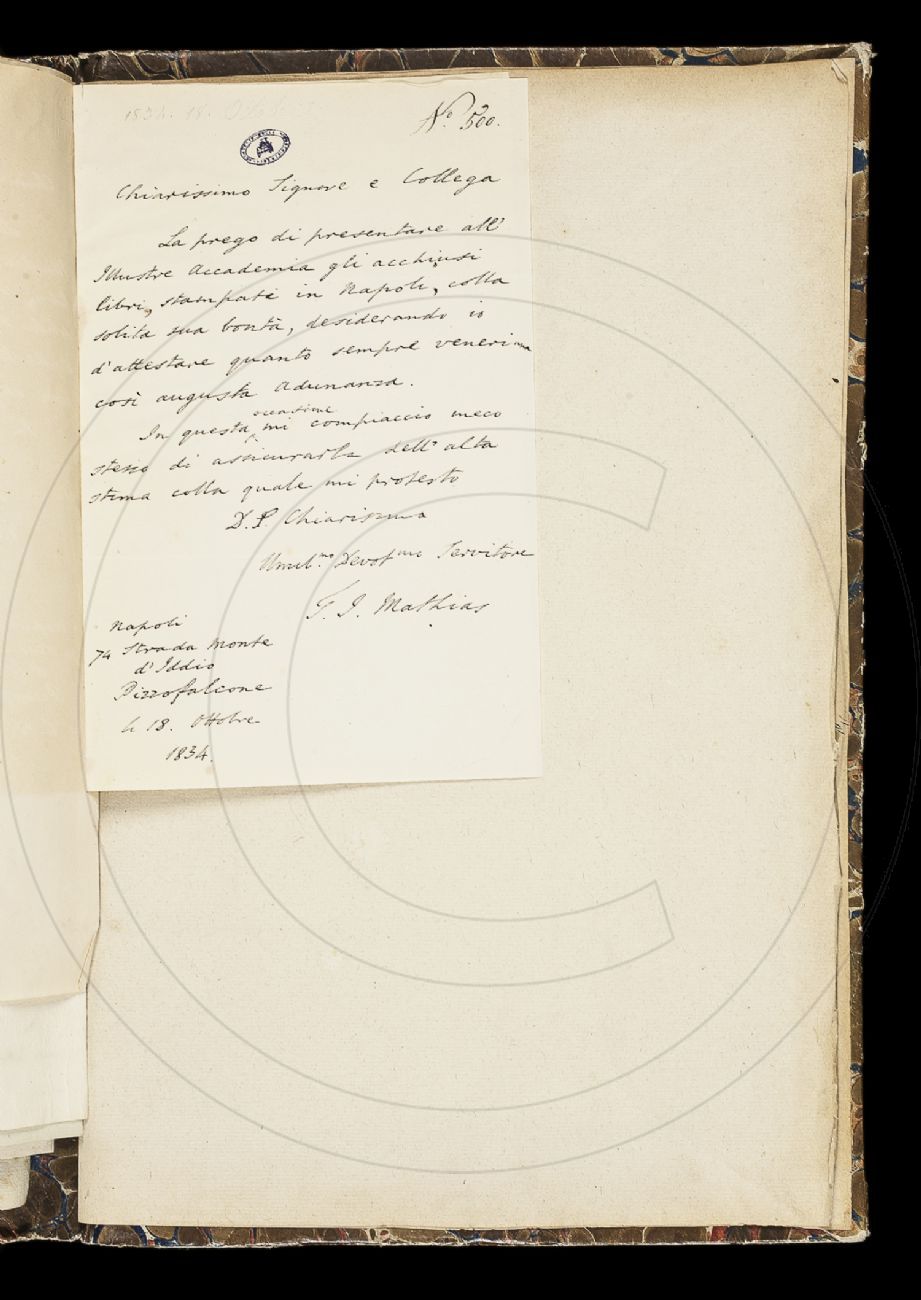 1834. 18. Ottobre
N.o 500.
Chiarissimo Signore e Collega
La prego di presentare all'
Illustre Accademia gli acchiusi
libri, stampati in Napoli, colla
solita sua bontà, desiderando io
d'attestare quanto sempre veneri una
così augusta Adunanza.
In questa occasione mi compiaccio meco
stesso di assicurarla dell'alta
stima colla quale mi protesto
D.S. Chiarissma
Umil.mo Devot.mo Servitore
T. J. Mathias
Napoli
74 Strada Monte
d'Iddio
Pizzofalcone
li 18. Ottobre
1834.